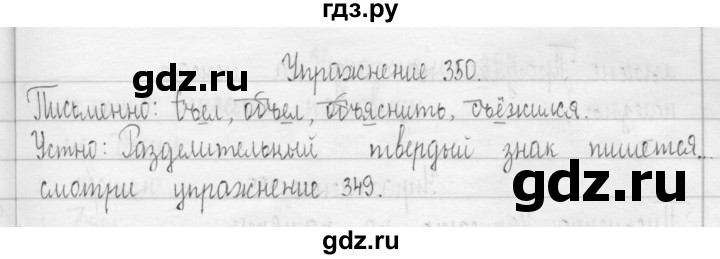 гдз.ру
Упражнение 350.
gdz.ru
Письменно: въел, объел, объяснить, съёжился.
Устно: Разделительный твердый знак пишется..
gdz.ru
смотри упражнение 349.
gdz.ru